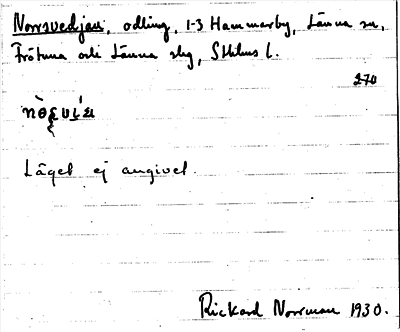 Norrsvedjan, odling, 1-3 Hammarby, Länna sn,
Frötuna och Länna skg, Sthlms l.
270
Läget ej angivet.
Rickard Norrman 1930.